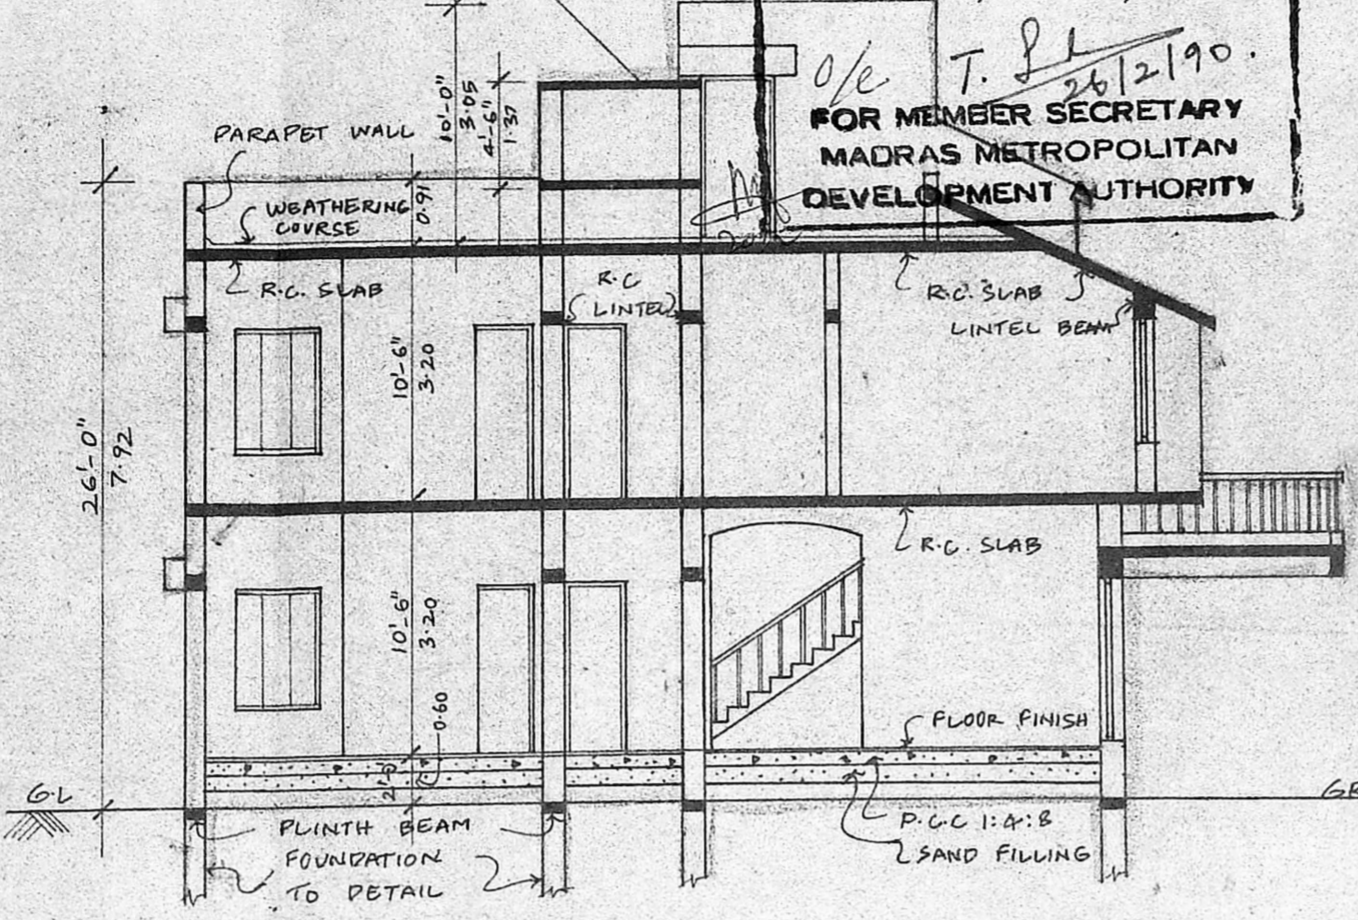 O/c T. 26/2/90.
FOR MEMBER SECRETARY
MADRAS METROPOLITAN
DEVELOPMENT AUTHORITY
10'-0"
3.05
4'-6"
1.37
PARAPET WALL
0.91
WEATHERING
COURSE
R.C. SLAB
R.C
LINTEL
R.C. SLAB
LINTEL BEAM
10'-6"
3.20
26'-0"
7.92
R.C. SLAB
10'-6"
3.20
0.60
2'-0"
FLOOR FINISH
G.L
PLINTH BEAM
FOUNDATION
TO DETAIL
P.C.C 1:4:8
SAND FILLING